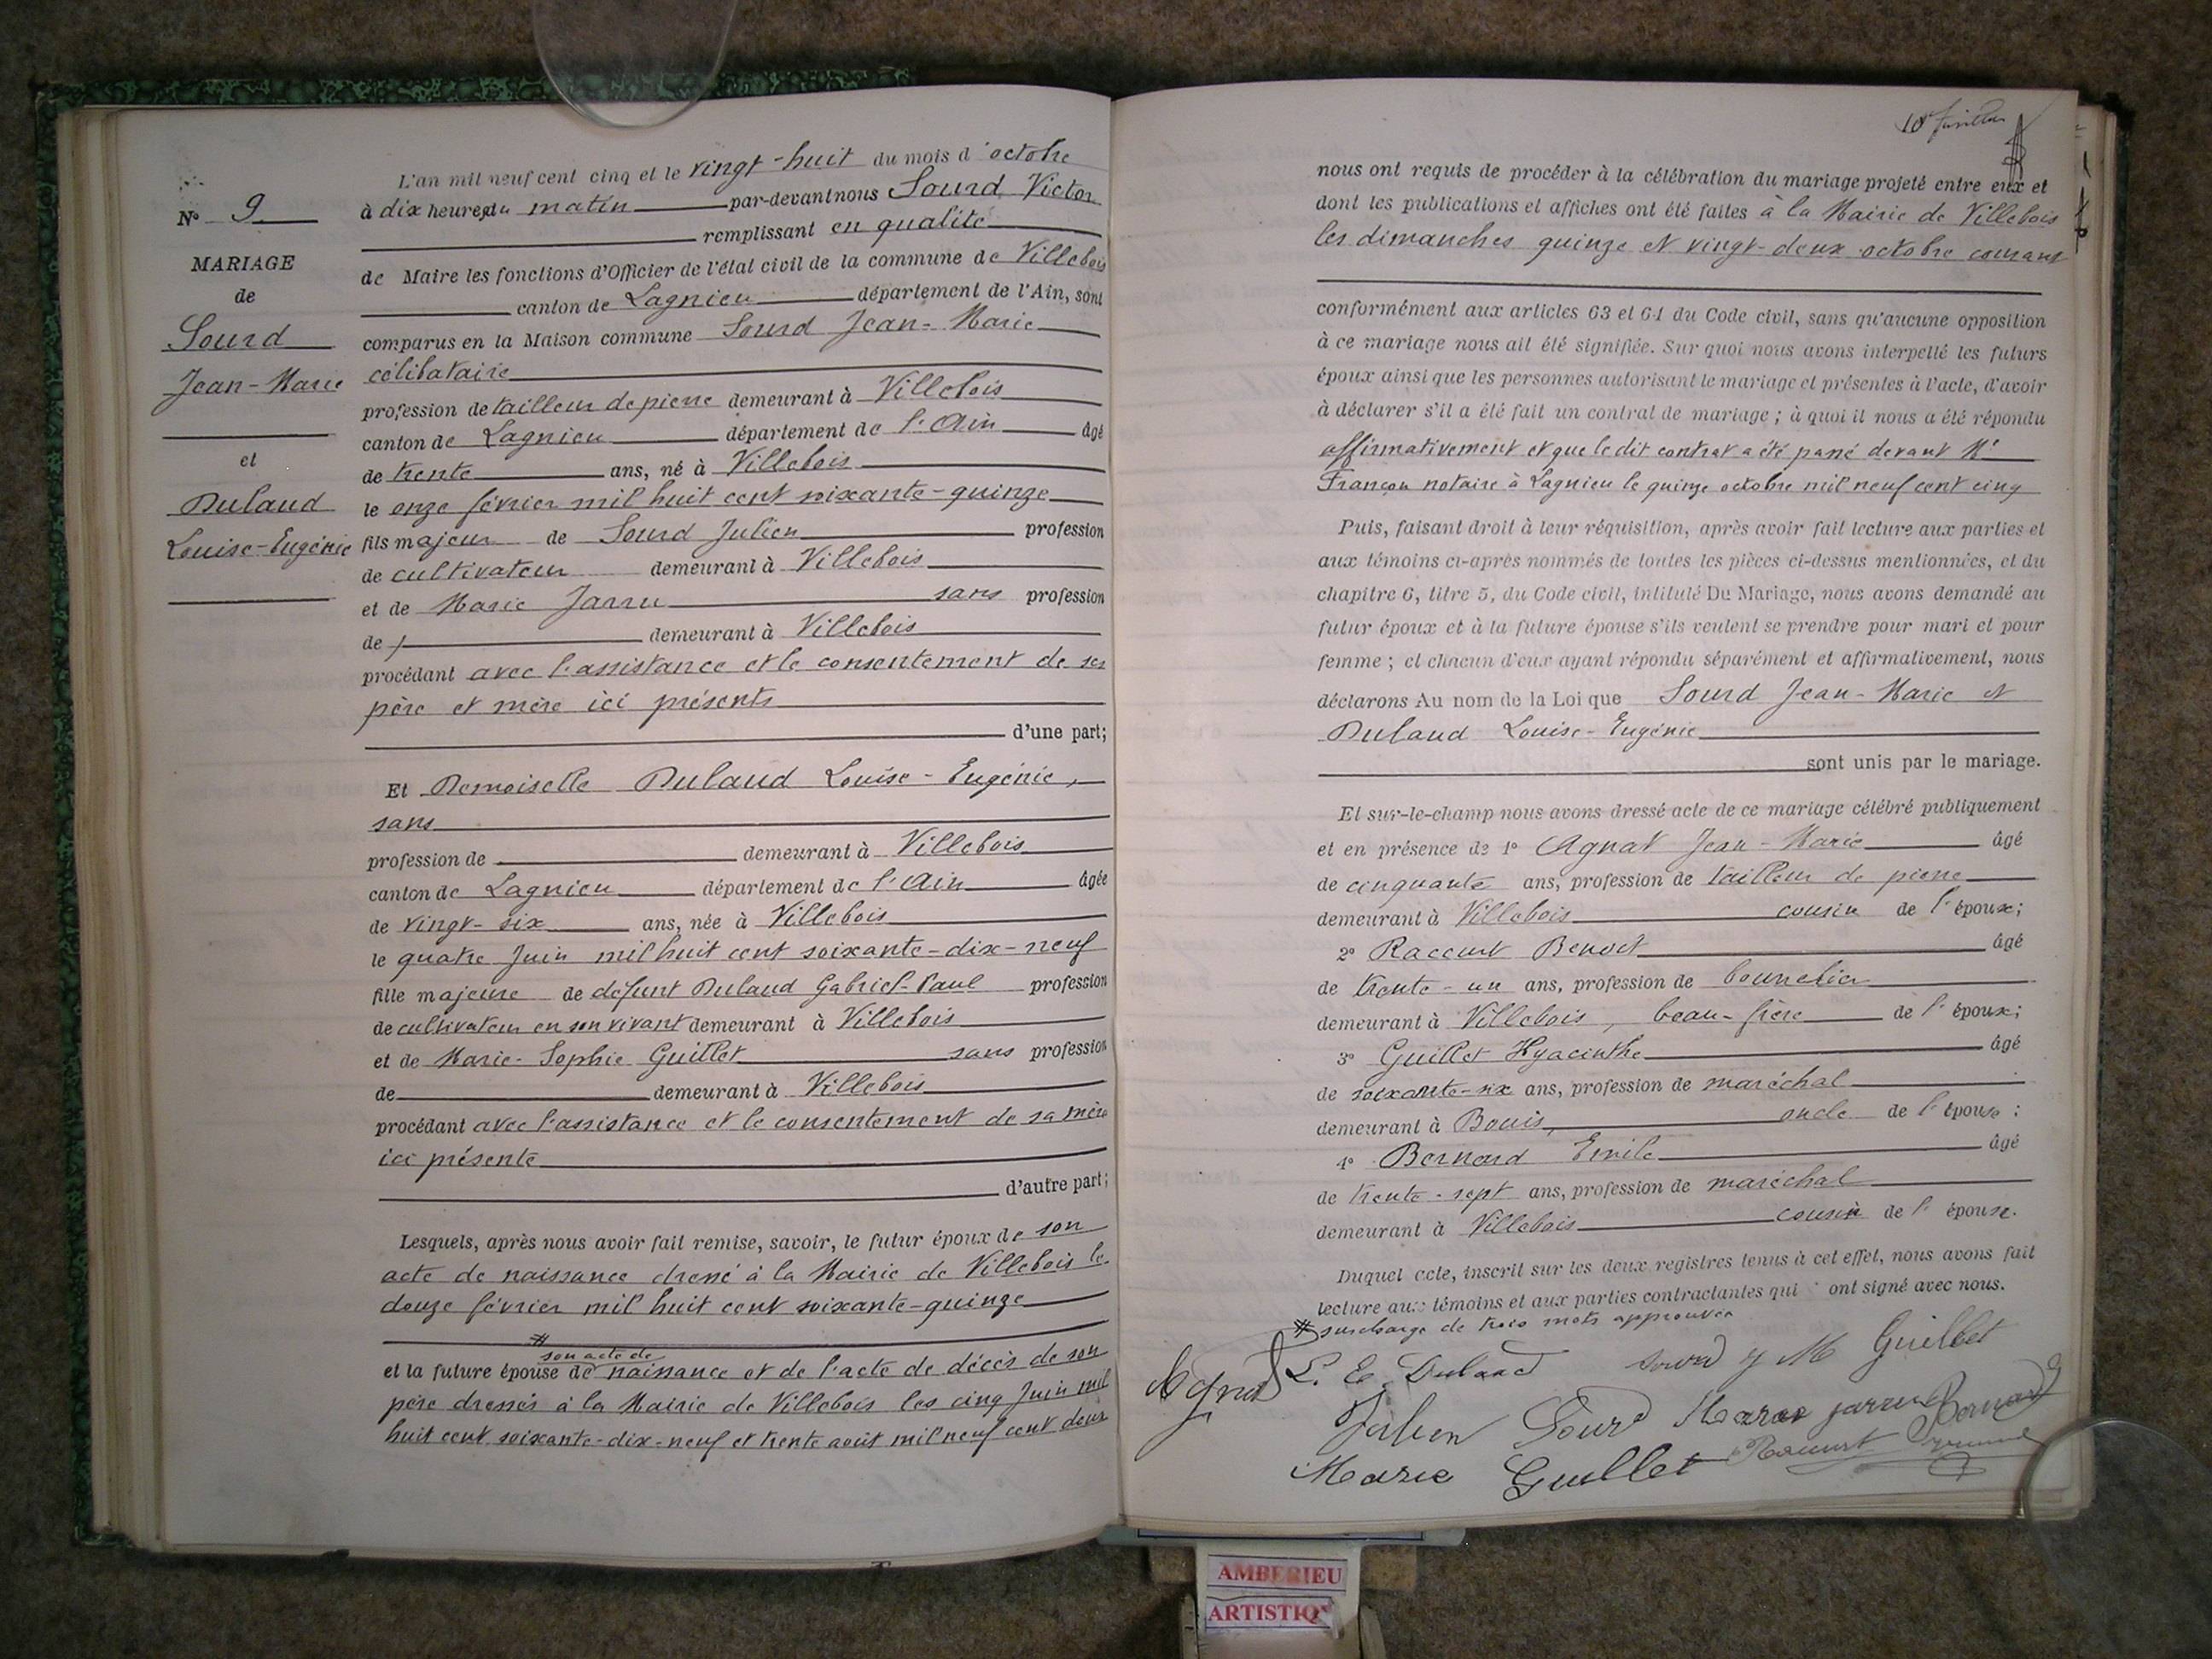 L'an mil neuf cent cinq et le vingt-huit du mois d'octobre
à dix heures du matin par-devant nous Sourd Victor
remplissant en qualité
de Maire les fonctions d'Officier de l'état civil de la commune de Villebois
canton de Lagnieu département de l'Ain, sont
comparus en la Maison commune Sourd Jean-Marie
célibataire
profession de tailleur de pierre demeurant à Villebois
canton de Lagnieu département de l'Ain âgé
de trente ans, né à Villebois
le onze février mil huit cent soixante-quinze
fils majeur de Sourd Julien profession
de cultivateur demeurant à Villebois
et de Marie Jarru sans profession
de demeurant à Villebois
procédant avec l'assistance et le consentement de ses
père et mère ici présents
d'une part;
Et Demoiselle Dulaud Louise-Eugénie,
sans
profession de demeurant à Villebois
canton de Lagnieu département de l'Ain âgée
de vingt-six ans, née à Villebois
le quatre Juin mil huit cent soixante-dix-neuf
fille majeure de défunt Dulaud Gabriel-Paul profession
de cultivateur en son vivant demeurant à Villebois
et de Marie-Sophie Guillet sans profession
de demeurant à Villebois
procédant avec l'assistance et le consentement de sa mère
ici présente
d'autre part;
Lesquels, après nous avoir fait remise, savoir, le futur époux de son
acte de naissance dressé à la Mairie de Villebois le
douze février mil huit cent soixante-quinze
# son acte de
et la future épouse de naissance et de l'acte de décès de son
père dressés à la Mairie de Villebois les cinq Juin mil
huit cent soixante-dix-neuf et trente août mil neuf cent deux
N° 9
MARIAGE
de
Sourd
Jean-Marie
et
Dulaud
Louise-Eugénie
10
nous ont requis de procéder à la célébration du mariage projeté entre eux et
dont les publications et affiches ont été faites à la Mairie de Villebois
les dimanches quinze et vingt-deux octobre courant
conformément aux articles 63 et 64 du Code civil, sans qu'aucune opposition
à ce mariage nous ait été signifiée. Sur quoi nous avons interpellé les futurs
époux ainsi que les personnes autorisant le mariage et présentes à l'acte, d'avoir
à déclarer s'il a été fait un contrat de mariage ; à quoi il nous a été répondu
affirmativement et que le dit contrat a été passé devant Me
Françon notaire à Lagnieu le quinze octobre mil neuf cent cinq
Puis, faisant droit à leur réquisition, après avoir fait lecture aux parties et
aux témoins ci-après nommés de toutes les pièces ci-dessus mentionnées, et du
chapitre 6, titre 5, du Code civil, intitulé Du Mariage, nous avons demandé au
futur époux et à la future épouse s'ils veulent se prendre pour mari et pour
femme ; et chacun d'eux ayant répondu séparément et affirmativement, nous
déclarons Au nom de la Loi que Sourd Jean-Marie et
Dulaud Louise-Eugénie
sont unis par le mariage.
Et sur-le-champ nous avons dressé acte de ce mariage célébré publiquement
et en présence de 1° Agnat Jean-Marie âgé
de cinquante ans, profession de tailleur de pierre
demeurant à Villebois cousin de l'époux;
2° Raccurt Benoit âgé
de trente-un ans, profession de bourrelier
demeurant à Villebois, beau-frère de l'époux;
3° Guillet Hyacinthe âgé
de soixante-six ans, profession de maréchal
demeurant à Bouis, oncle de l'épouse ;
4° Bernard Emile âgé
de trente-sept ans, profession de maréchal
demeurant à Villebois cousin de l'épouse.
Duquel acte, inscrit sur les deux registres tenus à cet effet, nous avons fait
lecture aux témoins et aux parties contractantes qui ont signé avec nous.
# surcharge de trois mots approuvée
Agnat L. E. Dulaud Sourd J M Guillet
Julien Sourd Marie jarru Bernard
Marie Guillet Raccurt
AMBERIEU
ARTISTIQ